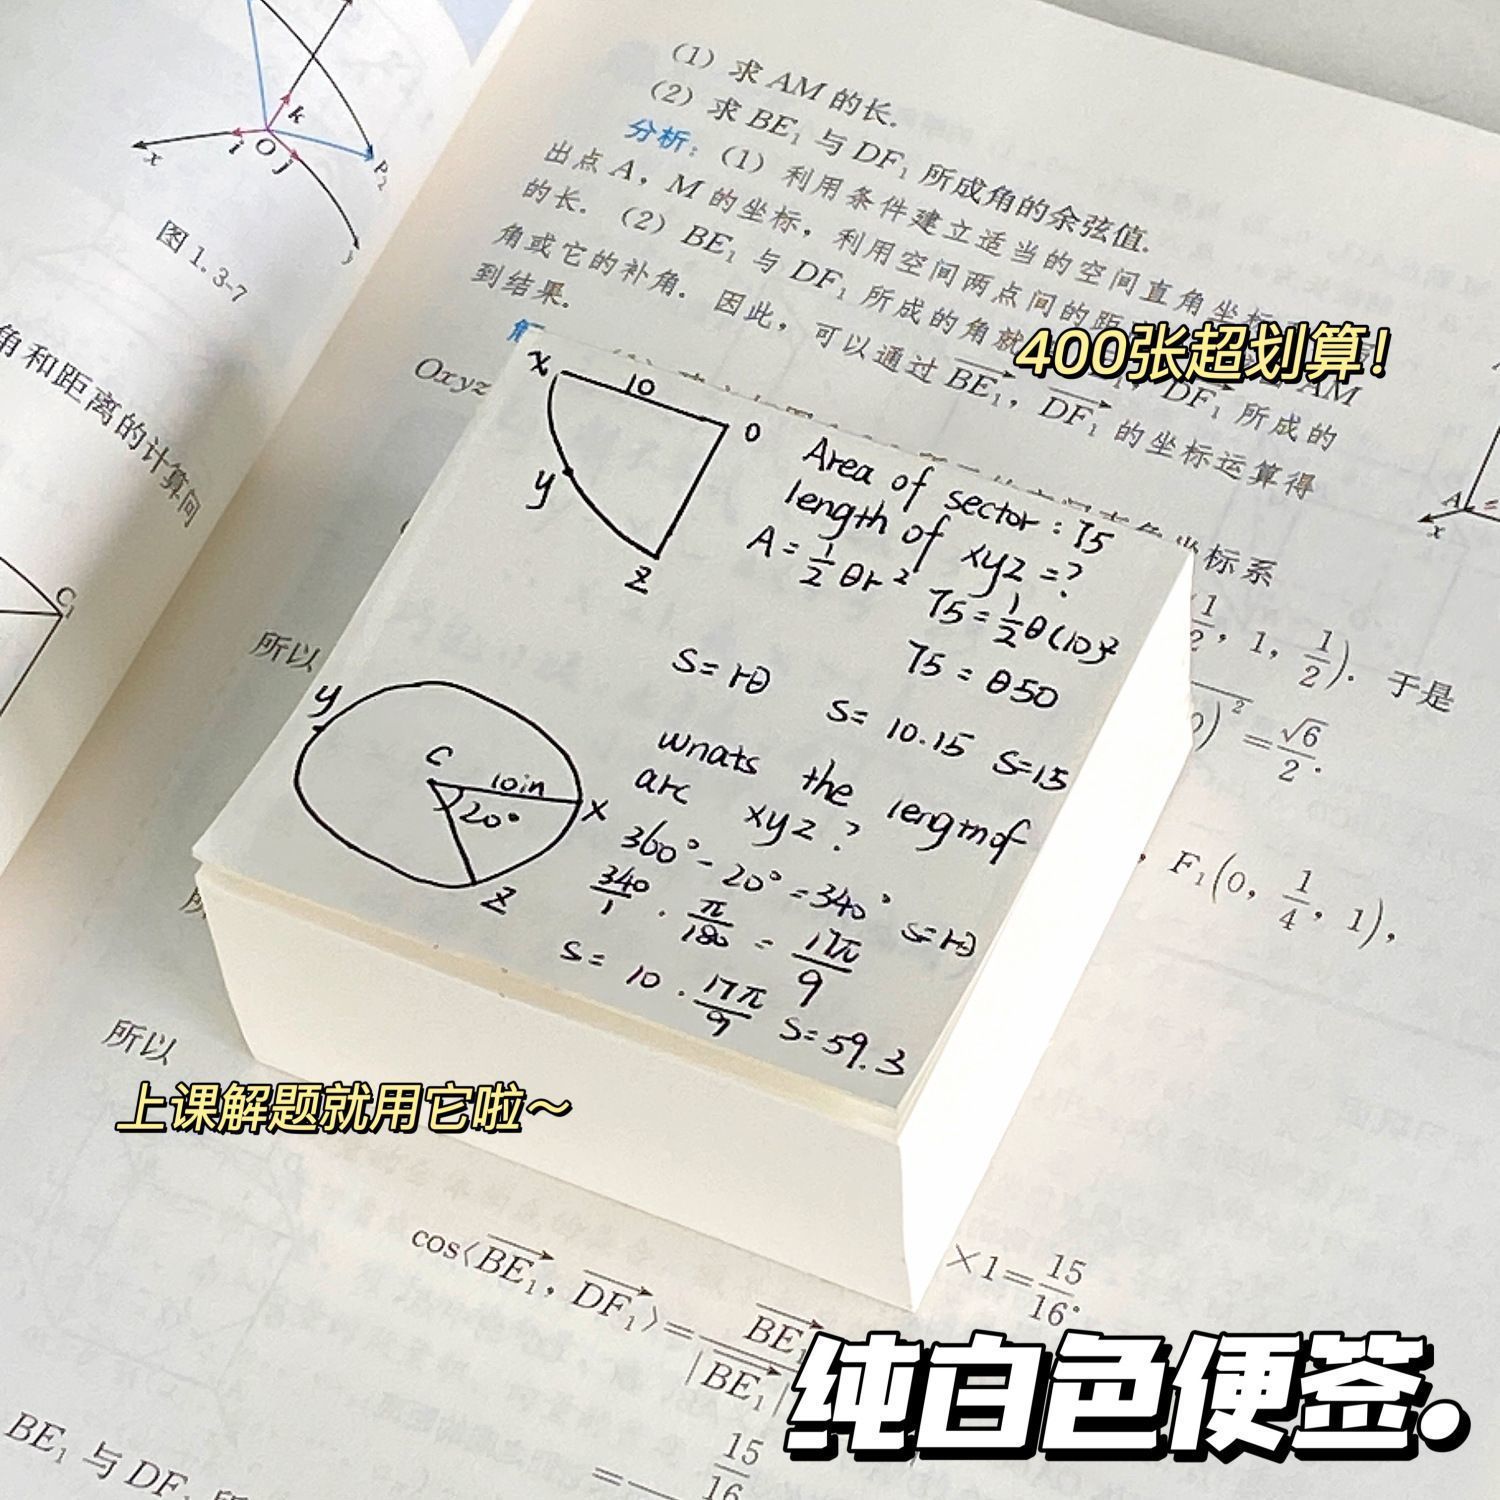 (1) 求 AM 的长.
(2) 求 BE₁ 与 DF₁ 所成角的余弦值.
分析：(1) 利用条件建立适当的空间直角坐标
出点 A，M 的坐标，利用空间两点间的距
的长. (2) BE₁ 与 DF₁ 所成的角就 AM
角或它的补角. 因此，可以通过 BE₁，DF₁ 所成的
到结果. DF₁ 的坐标运算得
k
i
O
j
x
P₂
图 1.3-7
角和距离的计算问
C₁
400张超划算!
Oxyz
坐标系
所以
1/2, 1, 1/2). 于是
)² = √6/2.
F₁(0, 1/4, 1),
A
x
x
10
O
y
z
Area of sector : 75
length of xyz = ?
A = 1/2 θr²
75 = 1/2 θ(10)²
75 = θ50
S = rθ
S = 10.15 S=15
y
C
10in
20°
x
z
wnats the lengthof
arc xyz ?
360° - 20° = 340° S=rθ
340/1 · π/180 = 17π/9
S = 10 · 17π/9 S=59.3
所以
上课解题就用它啦～
cos⟨BE₁, DF₁⟩ = BE₁
|BE₁|
×1=15/16.
纯白色便签.
= 15/16
BE₁ 与 DF₁ 所